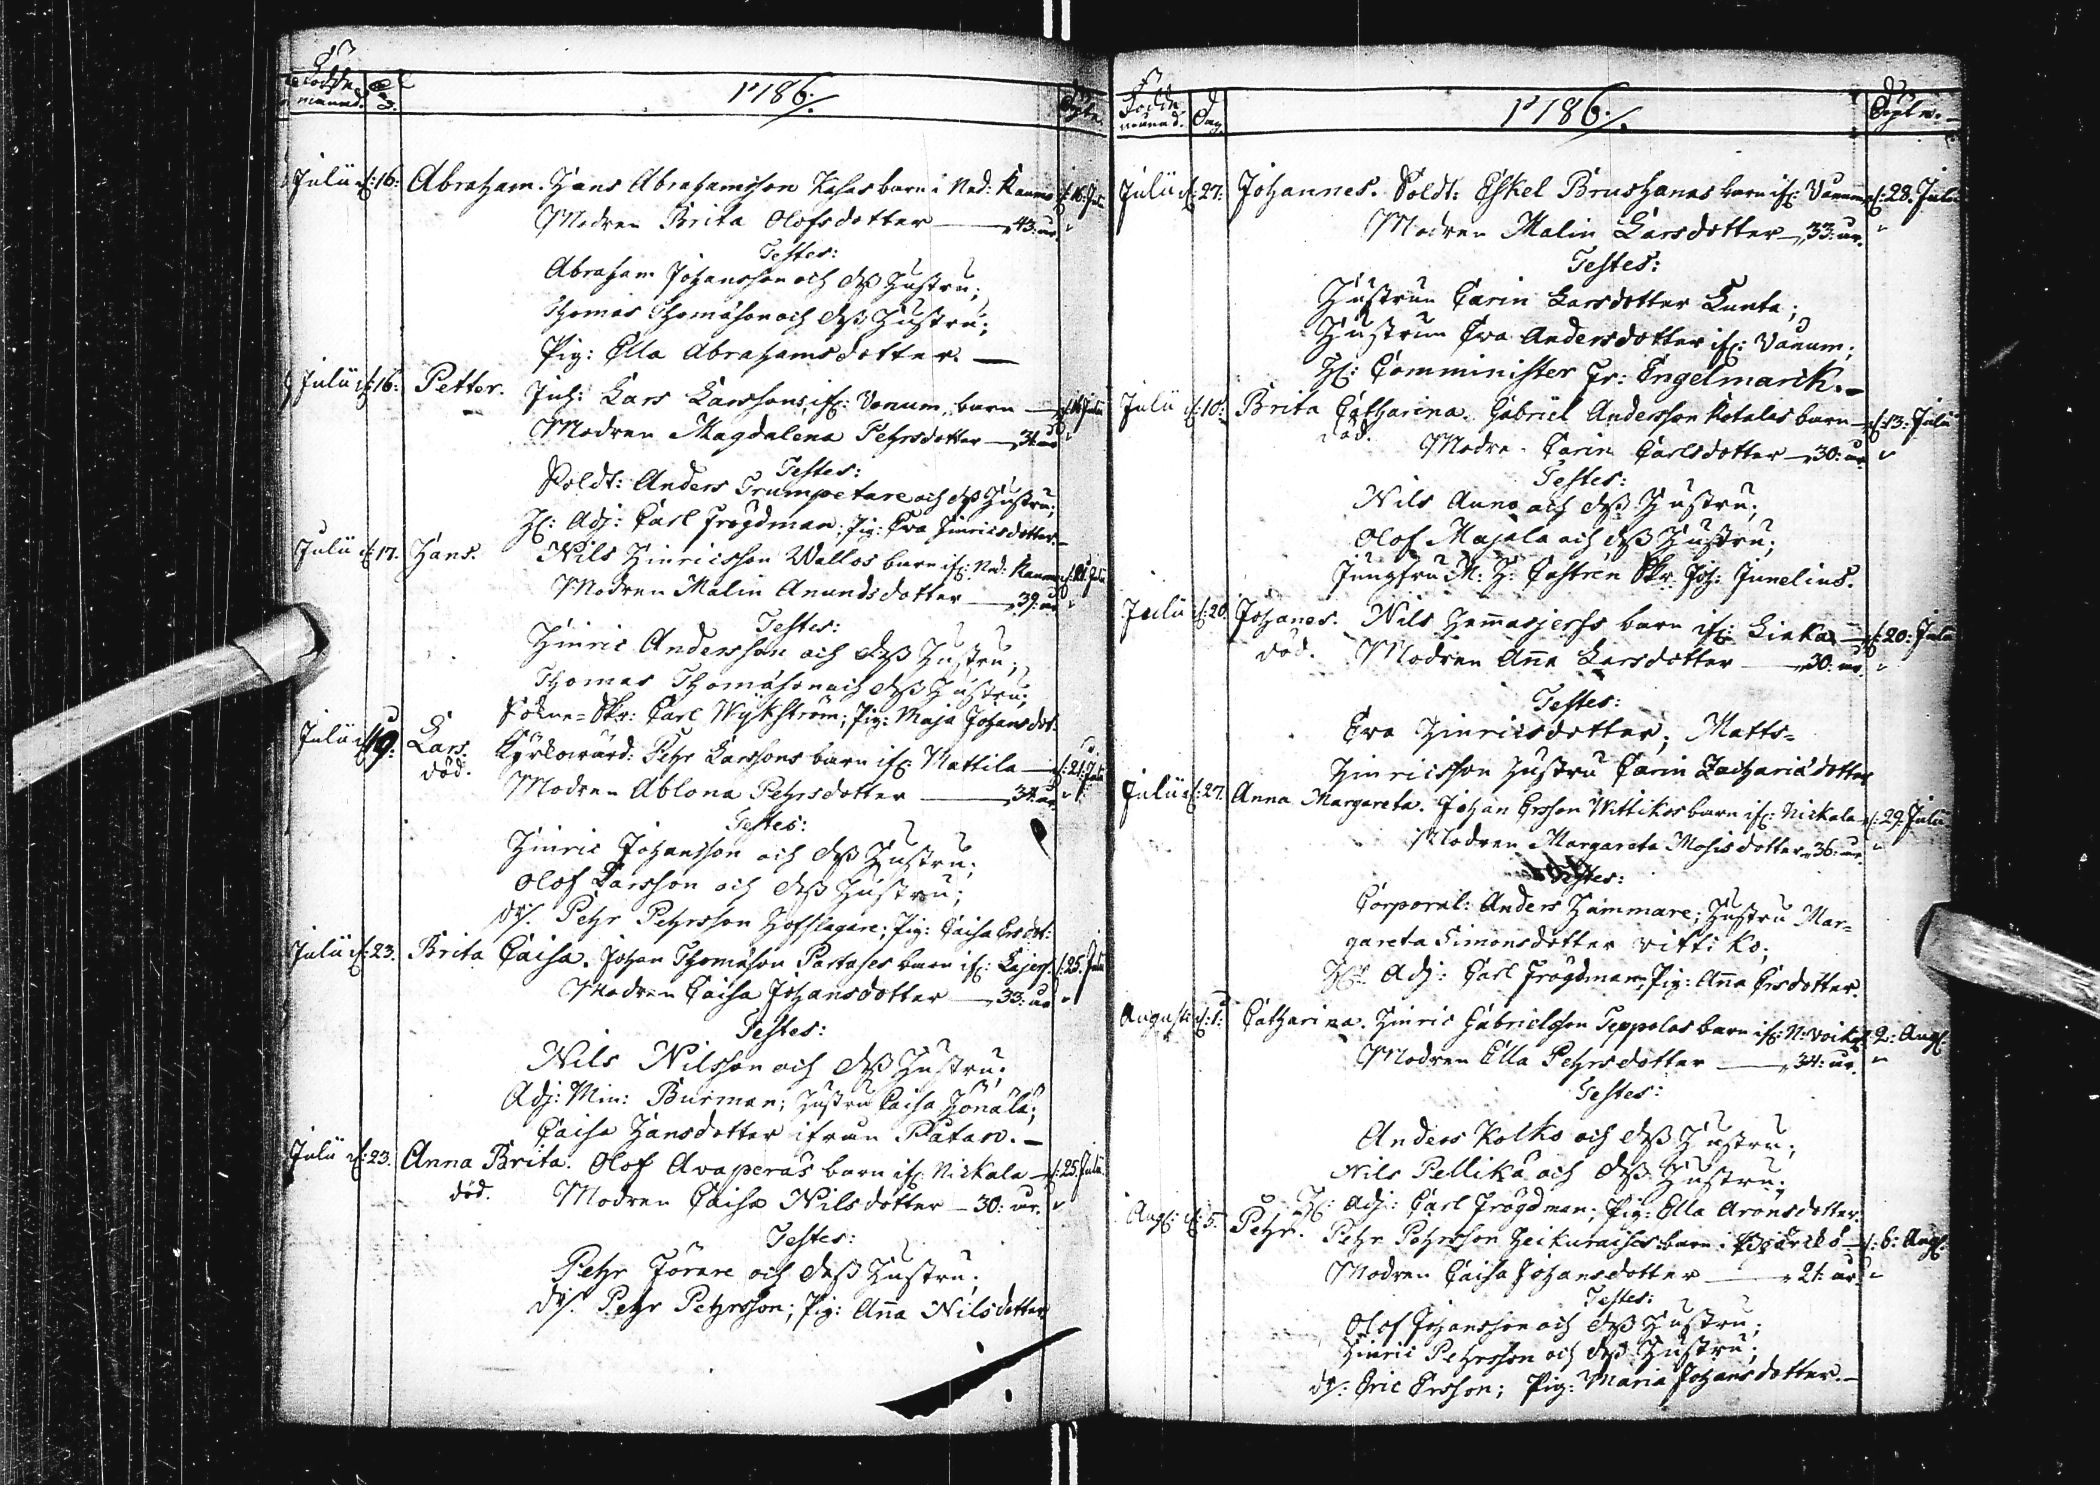 Födde månad. | d. | 1786. | Döpte.
Julii d: 16: Abraham. Hans Abrahamsson barn i Ned: d: 16: Julii
Modren Brita Olofsdotter — 43: år. "
Testes:
Abraham Johansson och dess Hustru;
Thomas Thomasson och dess Hustru;
Pig: Ella Abrahamsdotter. —
Julii d: 16: Petter. Inh: Lars Larssons, ifr: Vanum, barn — d: 16 Julii
Modren Magdalena Pehrsdotter — 31 år "
Testes:
Soldt: Anders Trumpetare och dess Hustru;
Hr: Adj: Carl Frögdman; Pig: Eva Hinricsdotter. —
Julii d: 17. Hans. Nils Hinricsson Wallos barn ifr: Ned: d: 18 Julii
Modren Malin Anundsdotter — 39: år "
Testes:
Hinric Andersson och dess Hustru;
Thomas Thomasson och dess Hustru;
Sokne-Skr: Carl Wijkström; Pig: Maja Johansdot:
Julii d: 19. Lars. Kyrkowärd: Pehr Larssons barn ifr: Mattila — d: 21: Julii
död. Modren Ablona Pehrsdotter — 34: år "
Testes:
Hinric Johansson och dess Hustru;
Olof Larsson och dess Hustru;
dr: Pehr Pehrsson Hofslagare; Pig: Caisa Ersdot:
Julii d: 23. Brita Caisa. Johan Thomasson barn ifr: d: 25. Julii
Modren Caisa Johansdotter — 33: år "
Testes:
Nils Nilsson och dess Hustru;
Adj: Min: Burman; Hustru Caisa Honala;
Caisa Hansdotter ifrån —
Julii d: 23. Anna Brita. Olof Avaperas barn ifr: Nickala — d: 25 Julii
död. Modren Caisa Nilsdotter — 30: år. "
Testes:
Pehr Förare och dess Hustru;
dr: Pehr Pehrsson; Pig: Anna Nilsdotter
Födde månad. | Dag. | 1786. | Döpte.
Julii d: 27: Johannes. Soldt: Eskel Brushanes barn ifr: Vanum d: 28. Julii
Modren Malin Larsdotter — 33: år. "
Testes:
Hustrun Carin Larsdotter Lunta;
Hustrun Eva Andersdotter ifr: Vanum;
Hr: Comminister Er: Engelmarck. —
Julii d: 10: Brita Catharina. Gabriel Andersson Kotalas barn — d: 13: Julii
död. Modre Carin Carlsdotter — 30: år "
Testes:
Nils Auno och dess Hustru;
Olof Majala och dess Hustru;
Jungfru M: H: Castrén Skr. Joh: Junelius.
Julii d: 20 Johanes. Nils barn ifr: d: 20: Julii
död. Modren Anna Larsdotter — 30: år. "
Testes:
Eva Hinricsdotter; Matts-
Hinricsson Hustru Carin Zachariædotter
Julii d: 27. Anna Margareta. Johan Ersson Wittikos barn ifr: Nickala d: 29. Julii
Modren Margareta Mosisdotter " 36: år. "
Testes:
Corporal: Anders Hammare; Hustru Mar-
gareta Simonsdotter vittiko;
Hr: Adj: Carl Frögdman; Pig: Anna Ersdotter.
Augusti d: 1: Catharina. Hinric Gabrielsson Teppolas barn ifr: d: 2: Augs:
Modren Ella Pehrsdotter — 34: år. "
Testes:
Anders Kolko och dess Hustru;
Nils Pellika och dess Hustru;
Hr: Adj: Carl Frögdman; Pig: Ella Aronsdotter.
Augs: d: 5 Pehr. Pehr Pehrsson barn — d: 6: Augs:
Modren Caisa Johansdotter — 21: år. "
Testes:
Olof Johansson och dess Hustru;
Hinric Pehrsson och dess Hustru;
dr: Eric Ersson; Pig: Maria Johansdotter. —